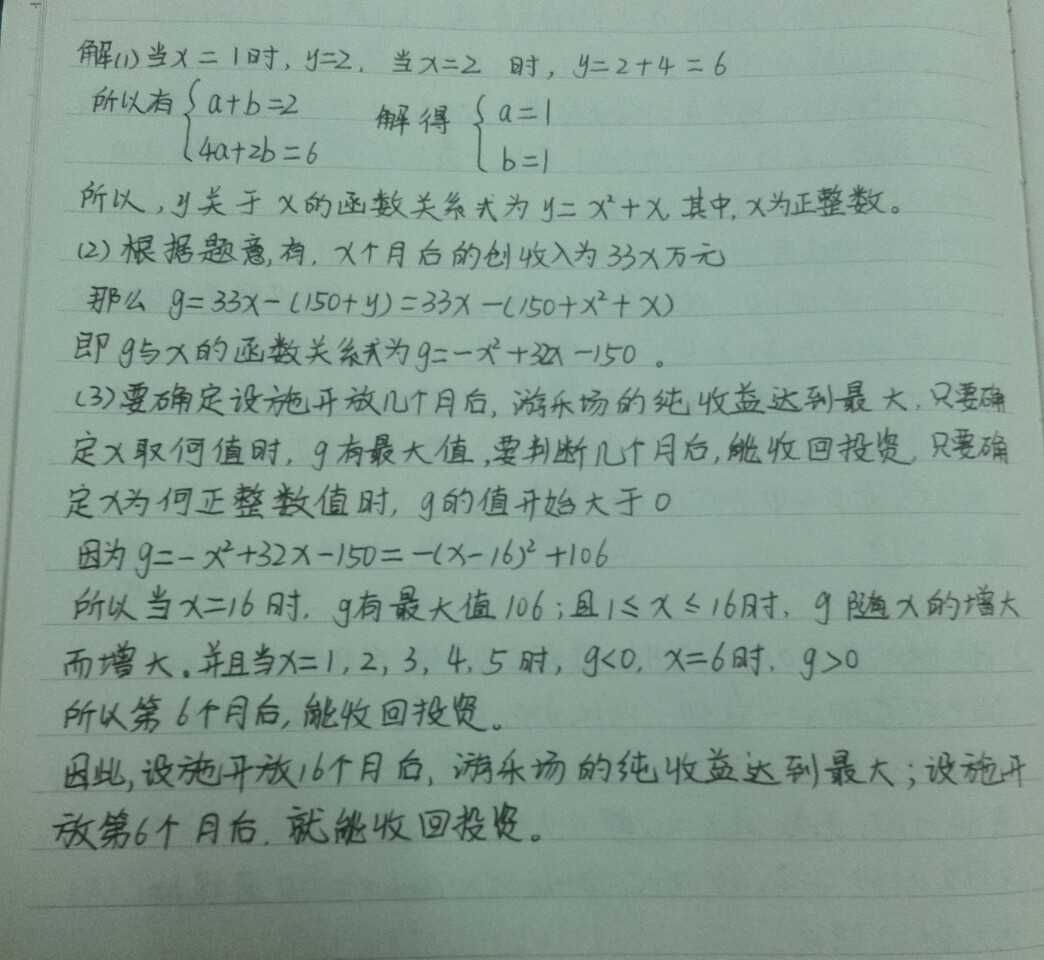 解(1)当x=1时, y=2. 当x=2 时, y=2+4=6
所以有{a+b=2 解得 {a=1
4a+2b=6 b=1
所以,y关于x的函数关系式为y=x²+x,其中,x为正整数。
(2)根据题意,有,x个月后的创收入为33x万元
那么 g=33x-(150+y)=33x-(150+x²+x)
即g与x的函数关系式为g=-x²+32x-150。
(3)要确定设施开放几个月后,游乐场的纯收益达到最大,只要确
定x取何值时,g有最大值,要判断几个月后,能收回投资,只要确
定x为何正整数值时,g的值开始大于0
因为g=-x²+32x-150=-(x-16)²+106
所以当x=16时,g有最大值106;且1≤x≤16时,g随x的增大
而增大。并且当x=1,2,3,4,5时,g<0,x=6时,g>0
所以第6个月后,能收回投资。
因此,设施开放16个月后,游乐场的纯收益达到最大;设施开
放第6个月后,就能收回投资。